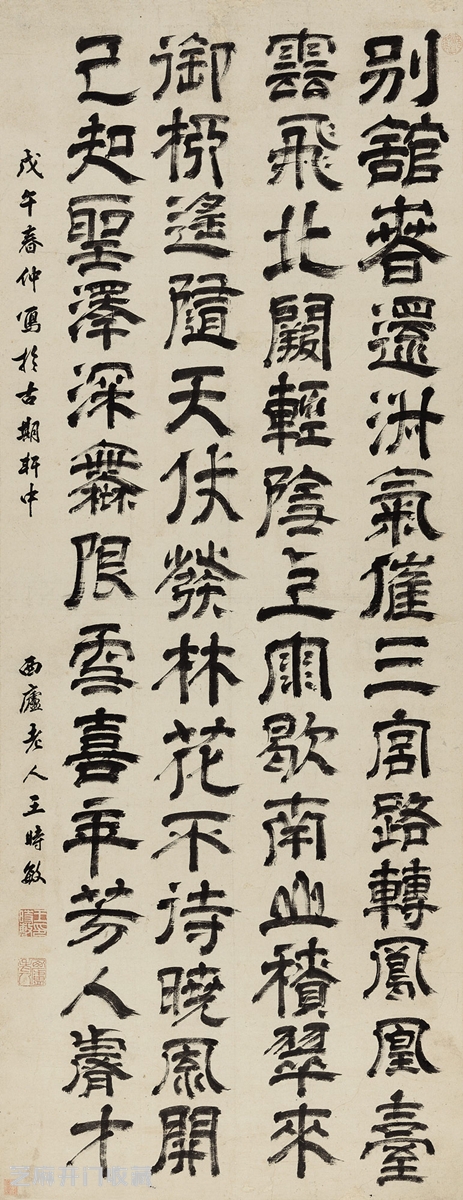 別舘春還淑氣催三宮路轉鳳凰臺
雲飛北闕輕陰雨歇南山積翠來
御柳遙隨天仗發林花不待曉風開
已知聖澤深無限雪喜年芳入睿才
戊午春仲寫於古期軒中
西廬老人王時敏